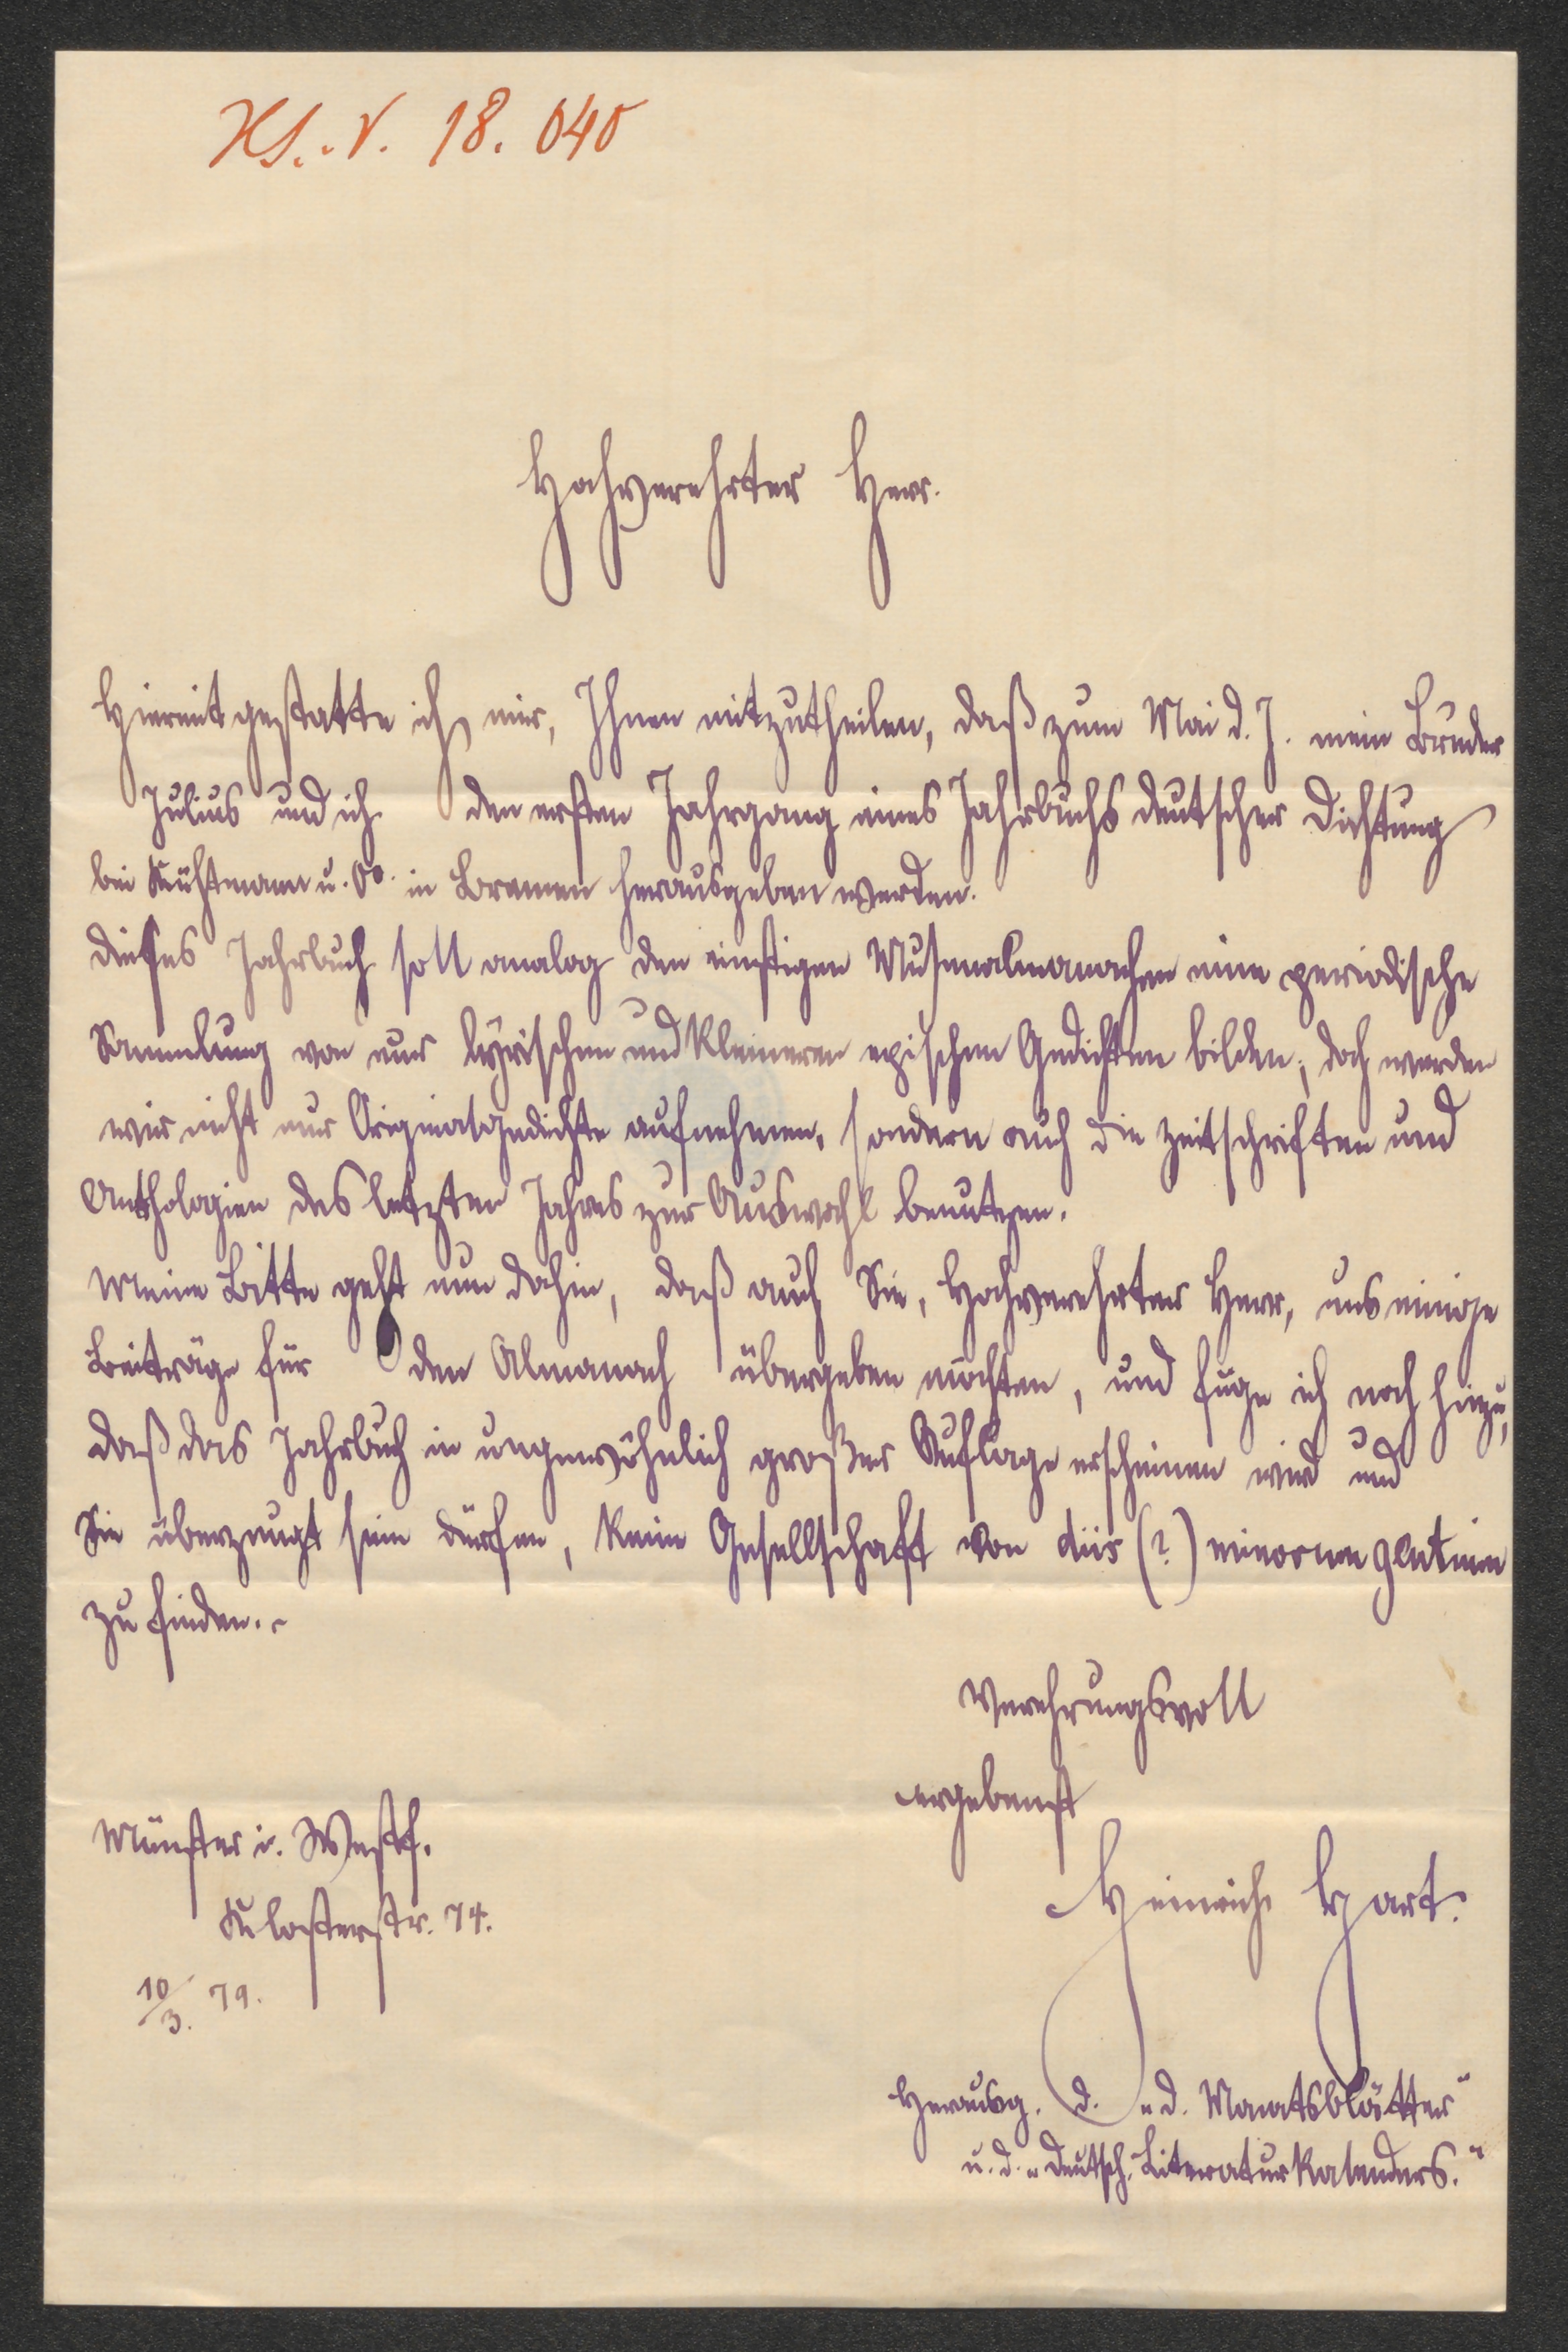 Hs.-V. 18.040
Hochverehrter Herr.
Hiermit gestatte ich mir, Ihnen mitzutheilen, daß zum Mai d. J. mein Bruder
Julius und ich den ersten Jahrgang eines Jahrbuchs deutscher Dichtung
bei Kühtmann u. Co. in Bremen herausgeben werden.
Dieses Jahrbuch soll analog den einstigen Musenalmanachen eine periodische
Sammlung von nur lyrischen und kleineren epischen Gedichten bilden; doch werden
wir nicht nur Originalgedichte aufnehmen, sondern auch die Zeitschriften und
Anthologien des letzten Jahres zur Auswahl benutzen.
Meine Bitte geht nun dahin, daß auch Sie, Hochverehrter Herr, uns einige
Beiträge für den Almanach übergeben möchten, und füge ich noch hinzu,
daß das Jahrbuch in ungewöhnlich großer Auflage erscheinen wird und
Sie überzeugt sein dürfen, keine Gesellschaft von diis (?) minorum gentium
zu finden.-
Verehrungsvoll
ergebenst
Heinrich Hart.
Münster i. Westf.
Klosterstr. 74.
10/3. 79.
Herausg. d. „d. Monatsblätter"
u. d. „Deutsch. Literaturkalenders."